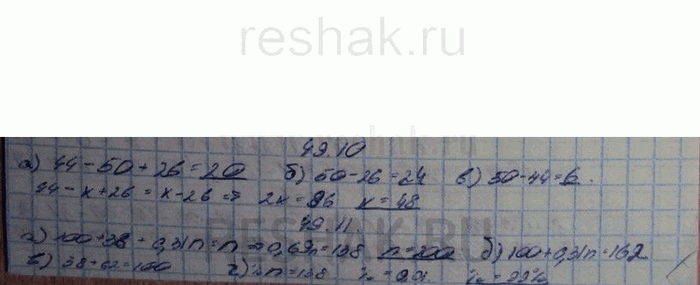 reshak.ru
49.10
а) 44-50+26=20 б) 50-26=24 в) 50-44=6.
44-x+26=x-26 ⇒ 2x=96 x=48
49.11
а) 100+38+0,31n=n ⇒ 0,69n=138 n=200 б) 100+0,31n=162
в) 38+62=100